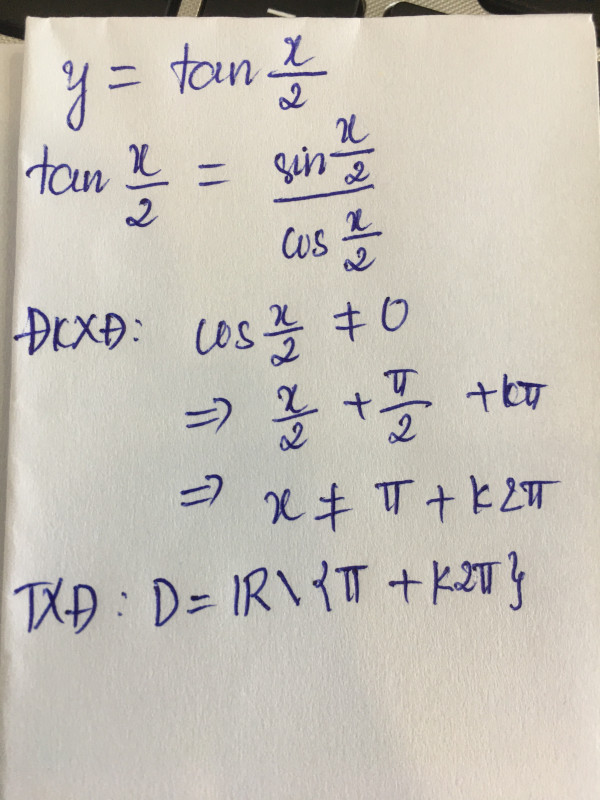 y = tan x/2
tan x/2 = sin x/2 / cos x/2
ĐKXĐ: cos x/2 ≠ 0
⇒ x/2 + π/2 + kπ
⇒ x ≠ π + k2π
TXĐ: D = ℝ \ {π + k2π}